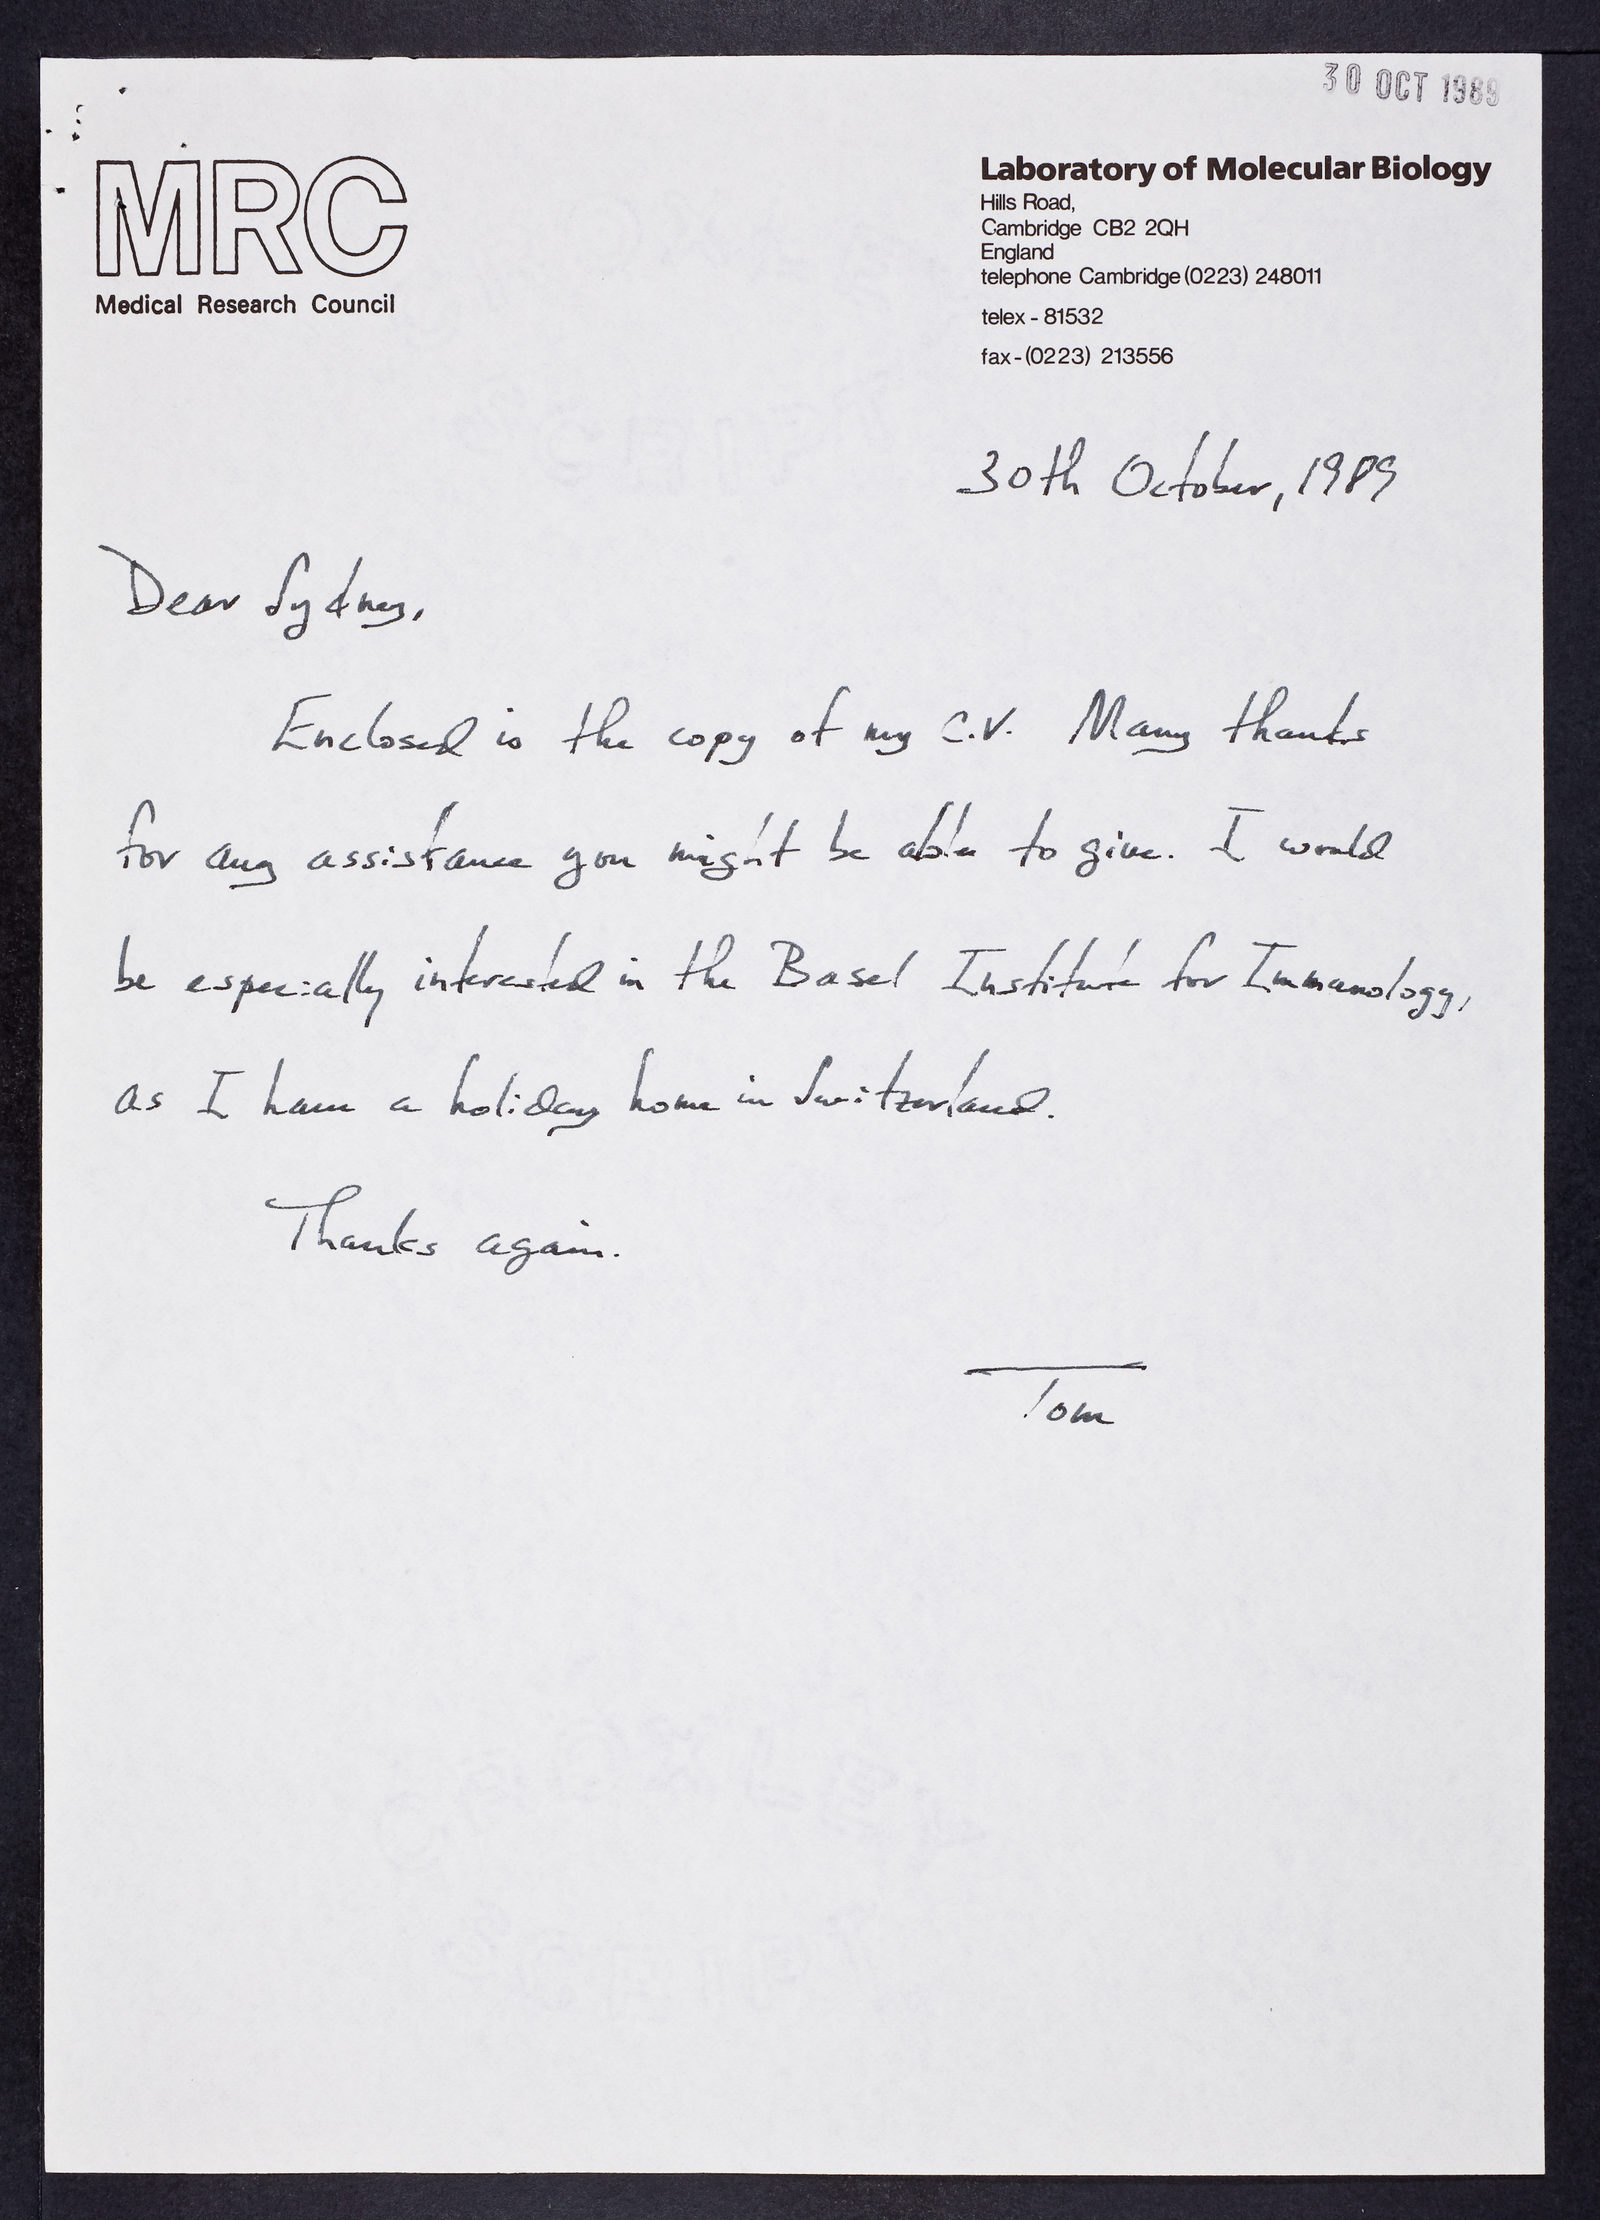 30 OCT 1989
MRC
Medical Research Council
Laboratory of Molecular Biology
Hills Road,
Cambridge CB2 2QH
England
telephone Cambridge (0223) 248011
telex - 81532
fax - (0223) 213556
30th October, 1989
Dear Sydney,
Enclosed is the copy of my C.V. Many thanks
for any assistance you might be able to give. I would
be especially interested in the Basel Institute for Immunology,
as I have a holiday home in Switzerland.
Thanks again.
Tom